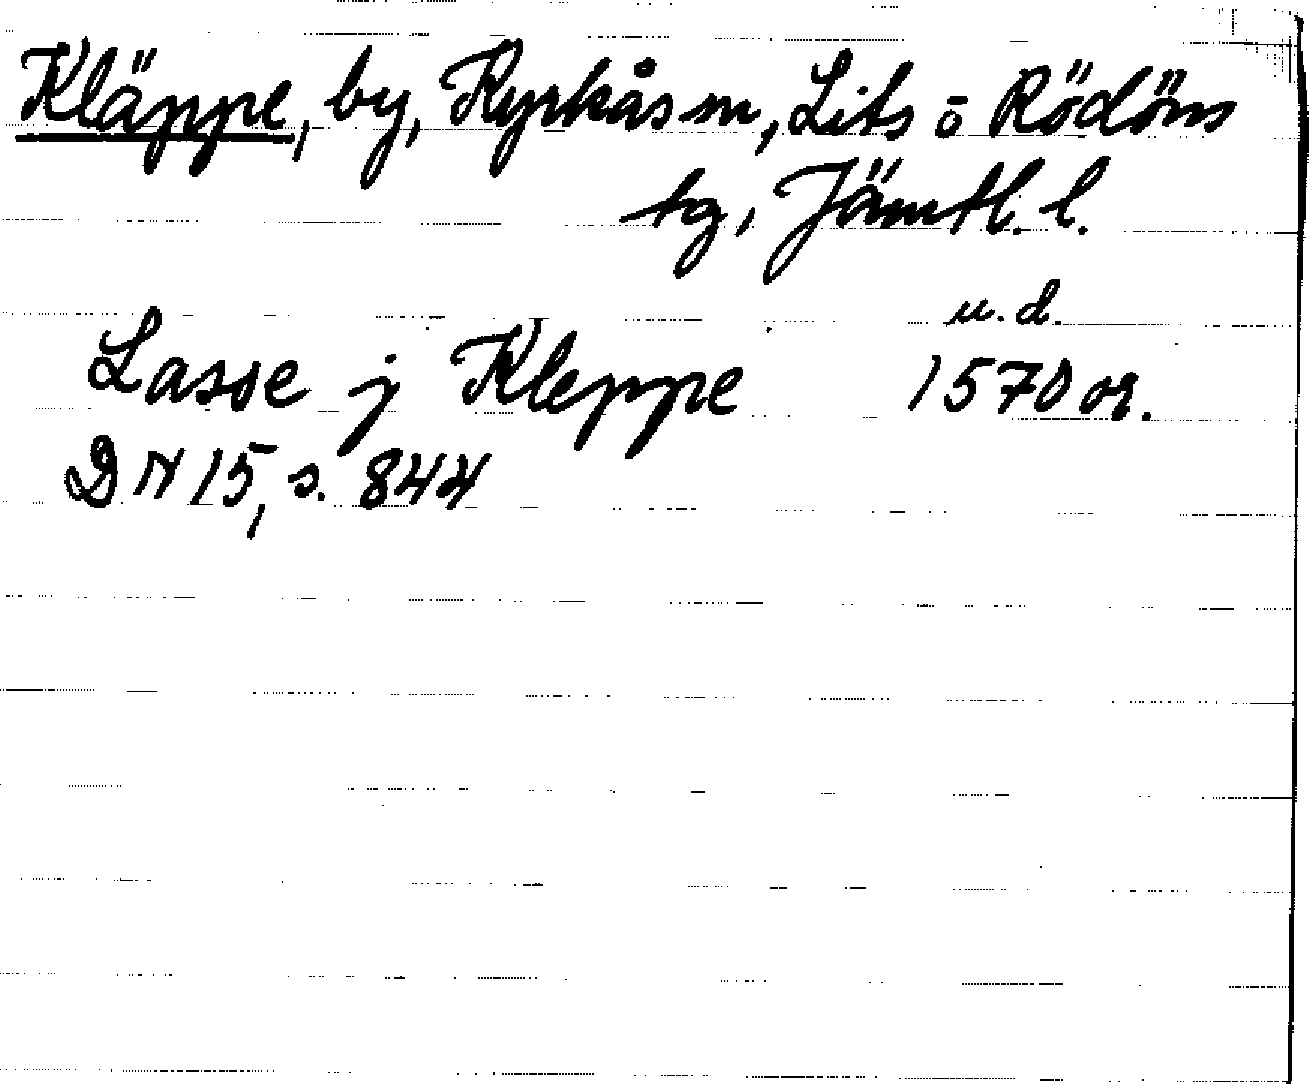 Kläppe, by, Kyrkås sn, Lits o Rödöns
tg, Jämtl. l.
u.d.
Lasse j Kleppe 1570 or.
DN 15, s. 844